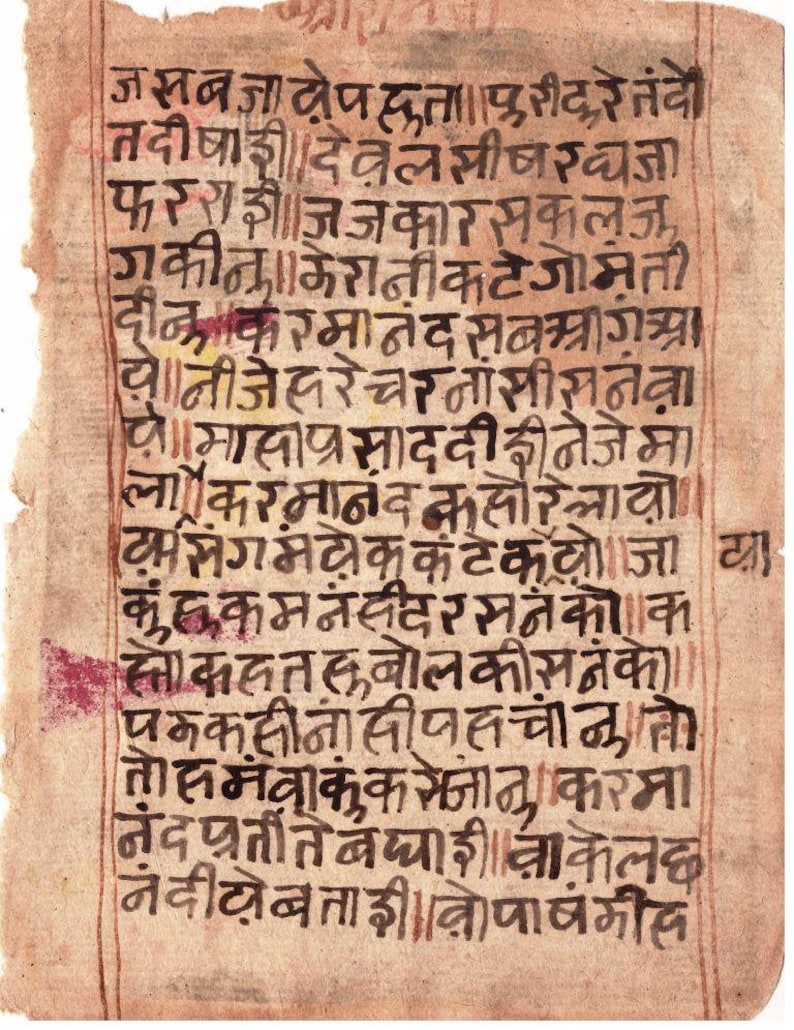 जसबजाय़ेपहुता॥पुरीदुरेतंदे
तदीषाई॥देव़लसीषरघजा
फरराई॥जजकारसकलजु
गकीनु॥केरानीकटेगोमंती
दीनु॥करमानंदसबआगंआ
य़े॥नीजेहरेचरनांसीसनंव़ा
य़े॥माहाप्रसाददीईनेजेमा
ला॥करमानंदकहोरेलाय़ो॥
संगमंय़ेककंटेकय़ो॥जा
य़ा
कुंहुकमनंहीदरसनंको॥क
होकहतहुबोलकीसनंको॥
षककहीनांहीपहचांनु॥तो
तोहमंव़ाकुंकसेजांनु॥करमा
नंदप्रतीतेबघाई॥व़ाकेलछ
नंदीय़ेबताई॥व़ोपाषंकीह